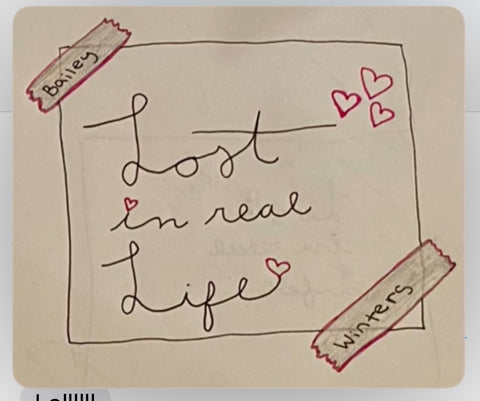 Bailey
Lost
in real
Life
Winters